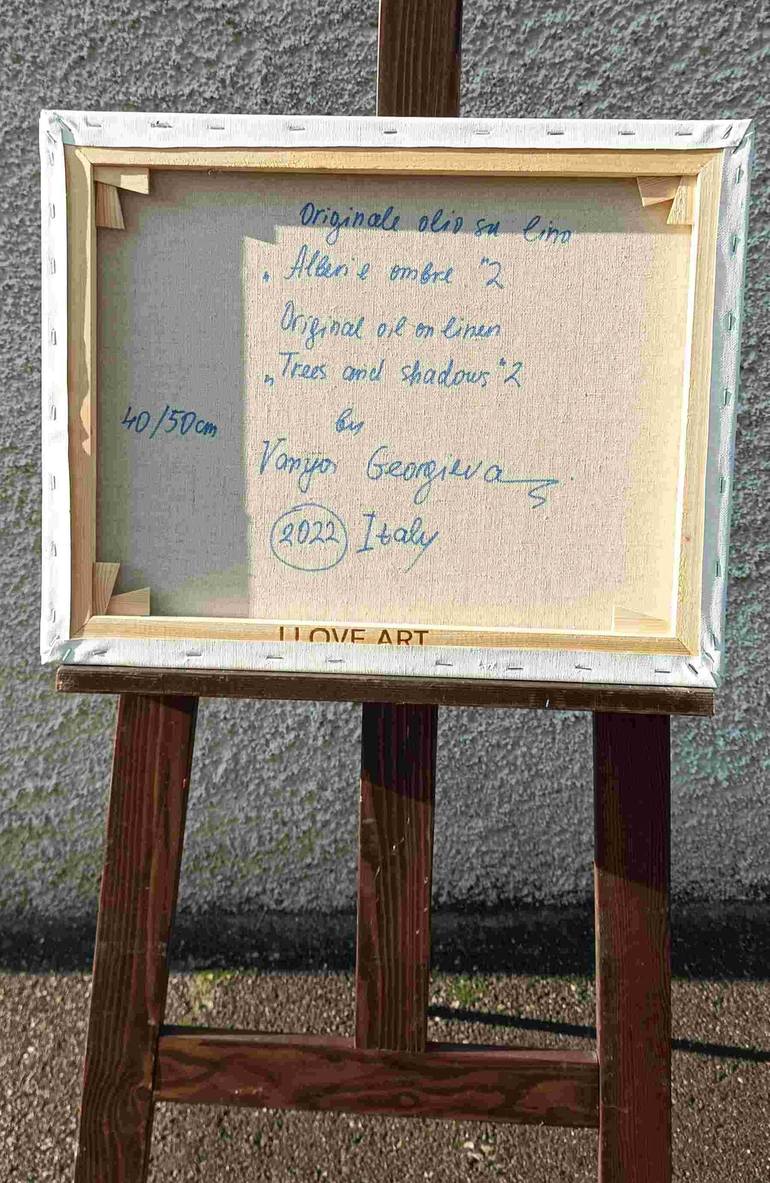 Originale olio su lino
„Alberi e ombre."2
Original oil on linen
„Trees and shadows"2
40/50cm
by
Vanya Georgieva
2022 Italy
I LOVE ART